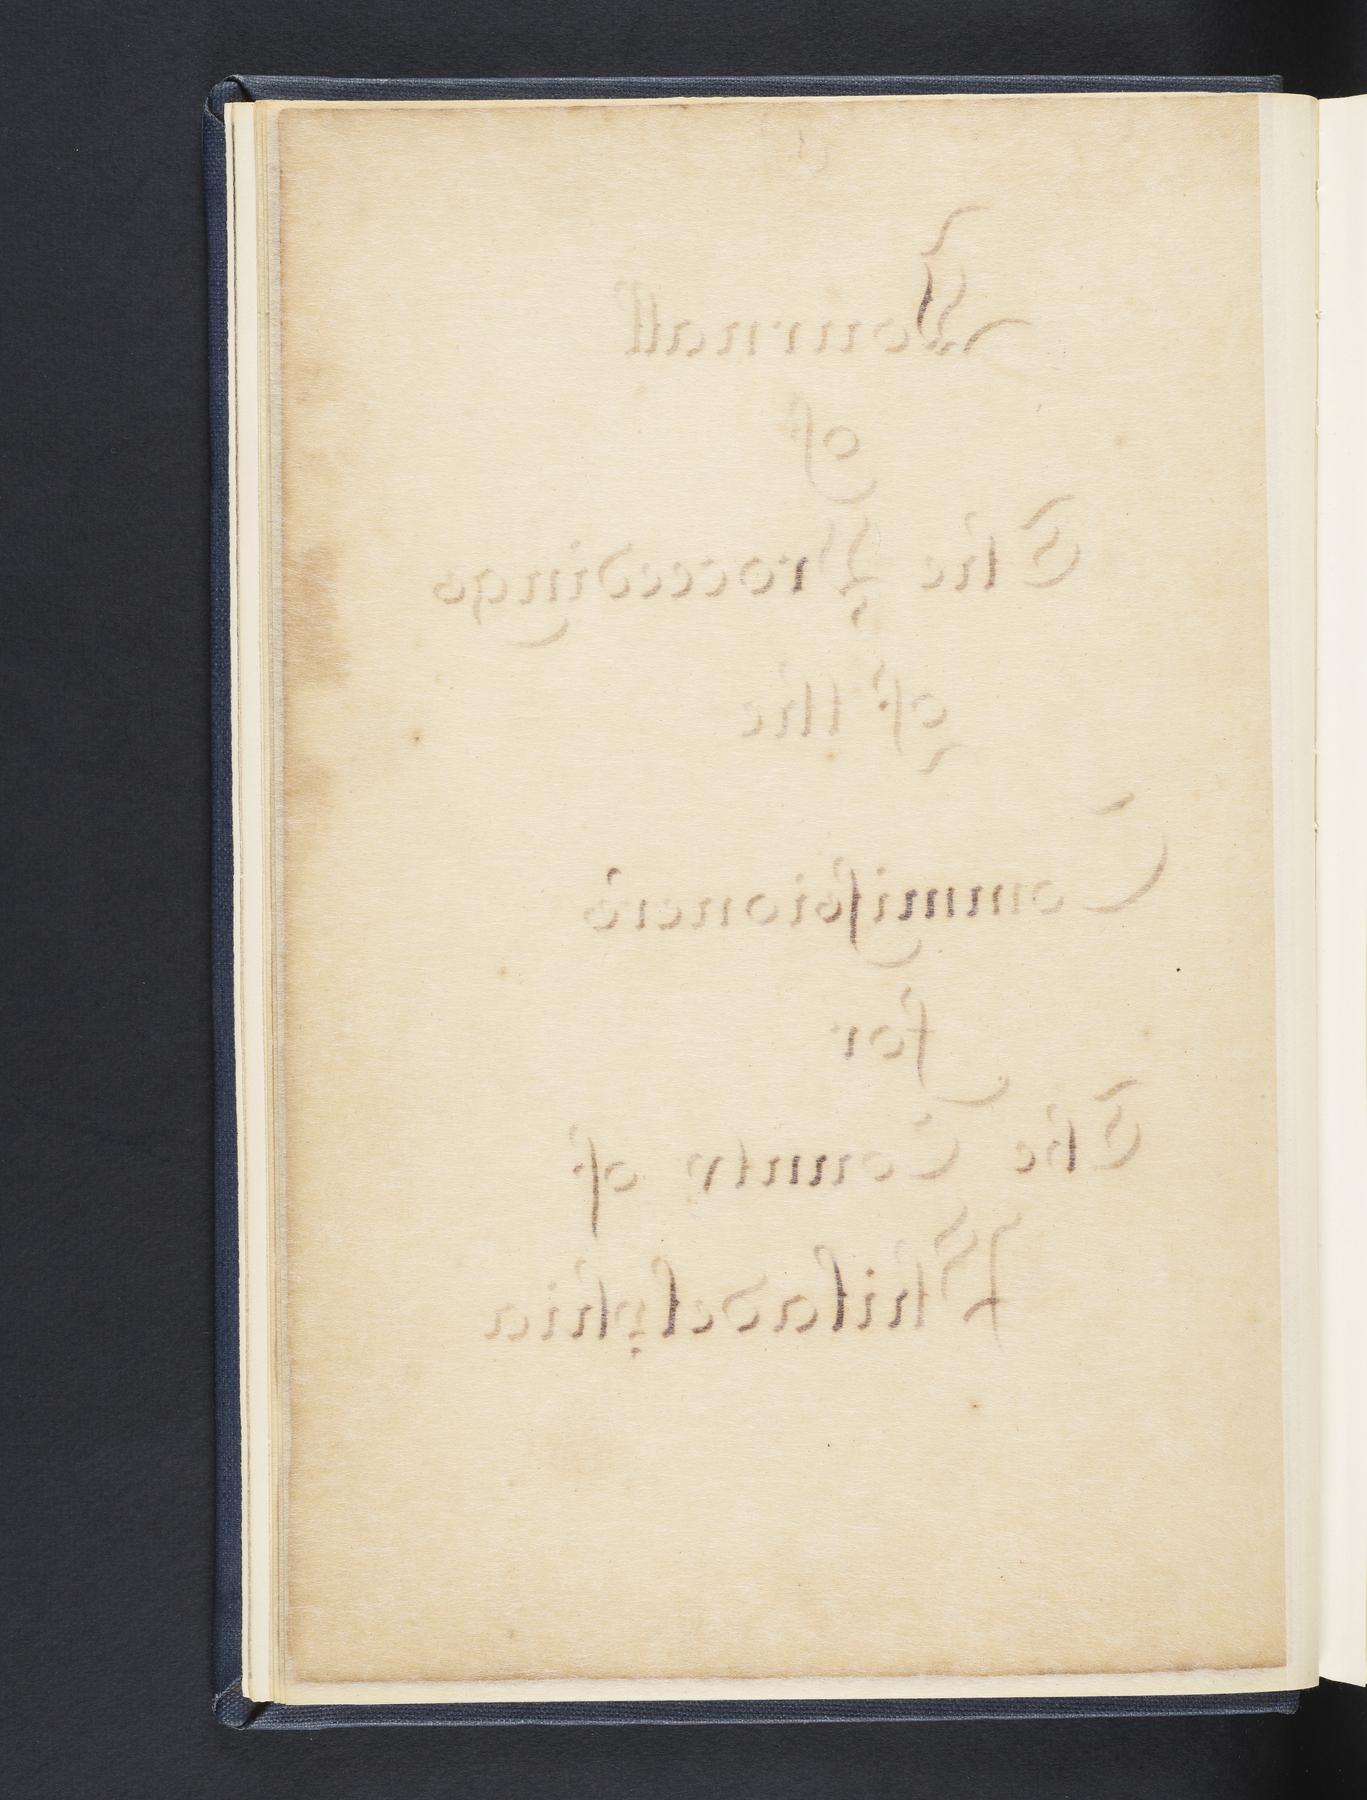 Journall
of
The Proceedings
of the
Commiſsioners
for
The County of
Philadelphia